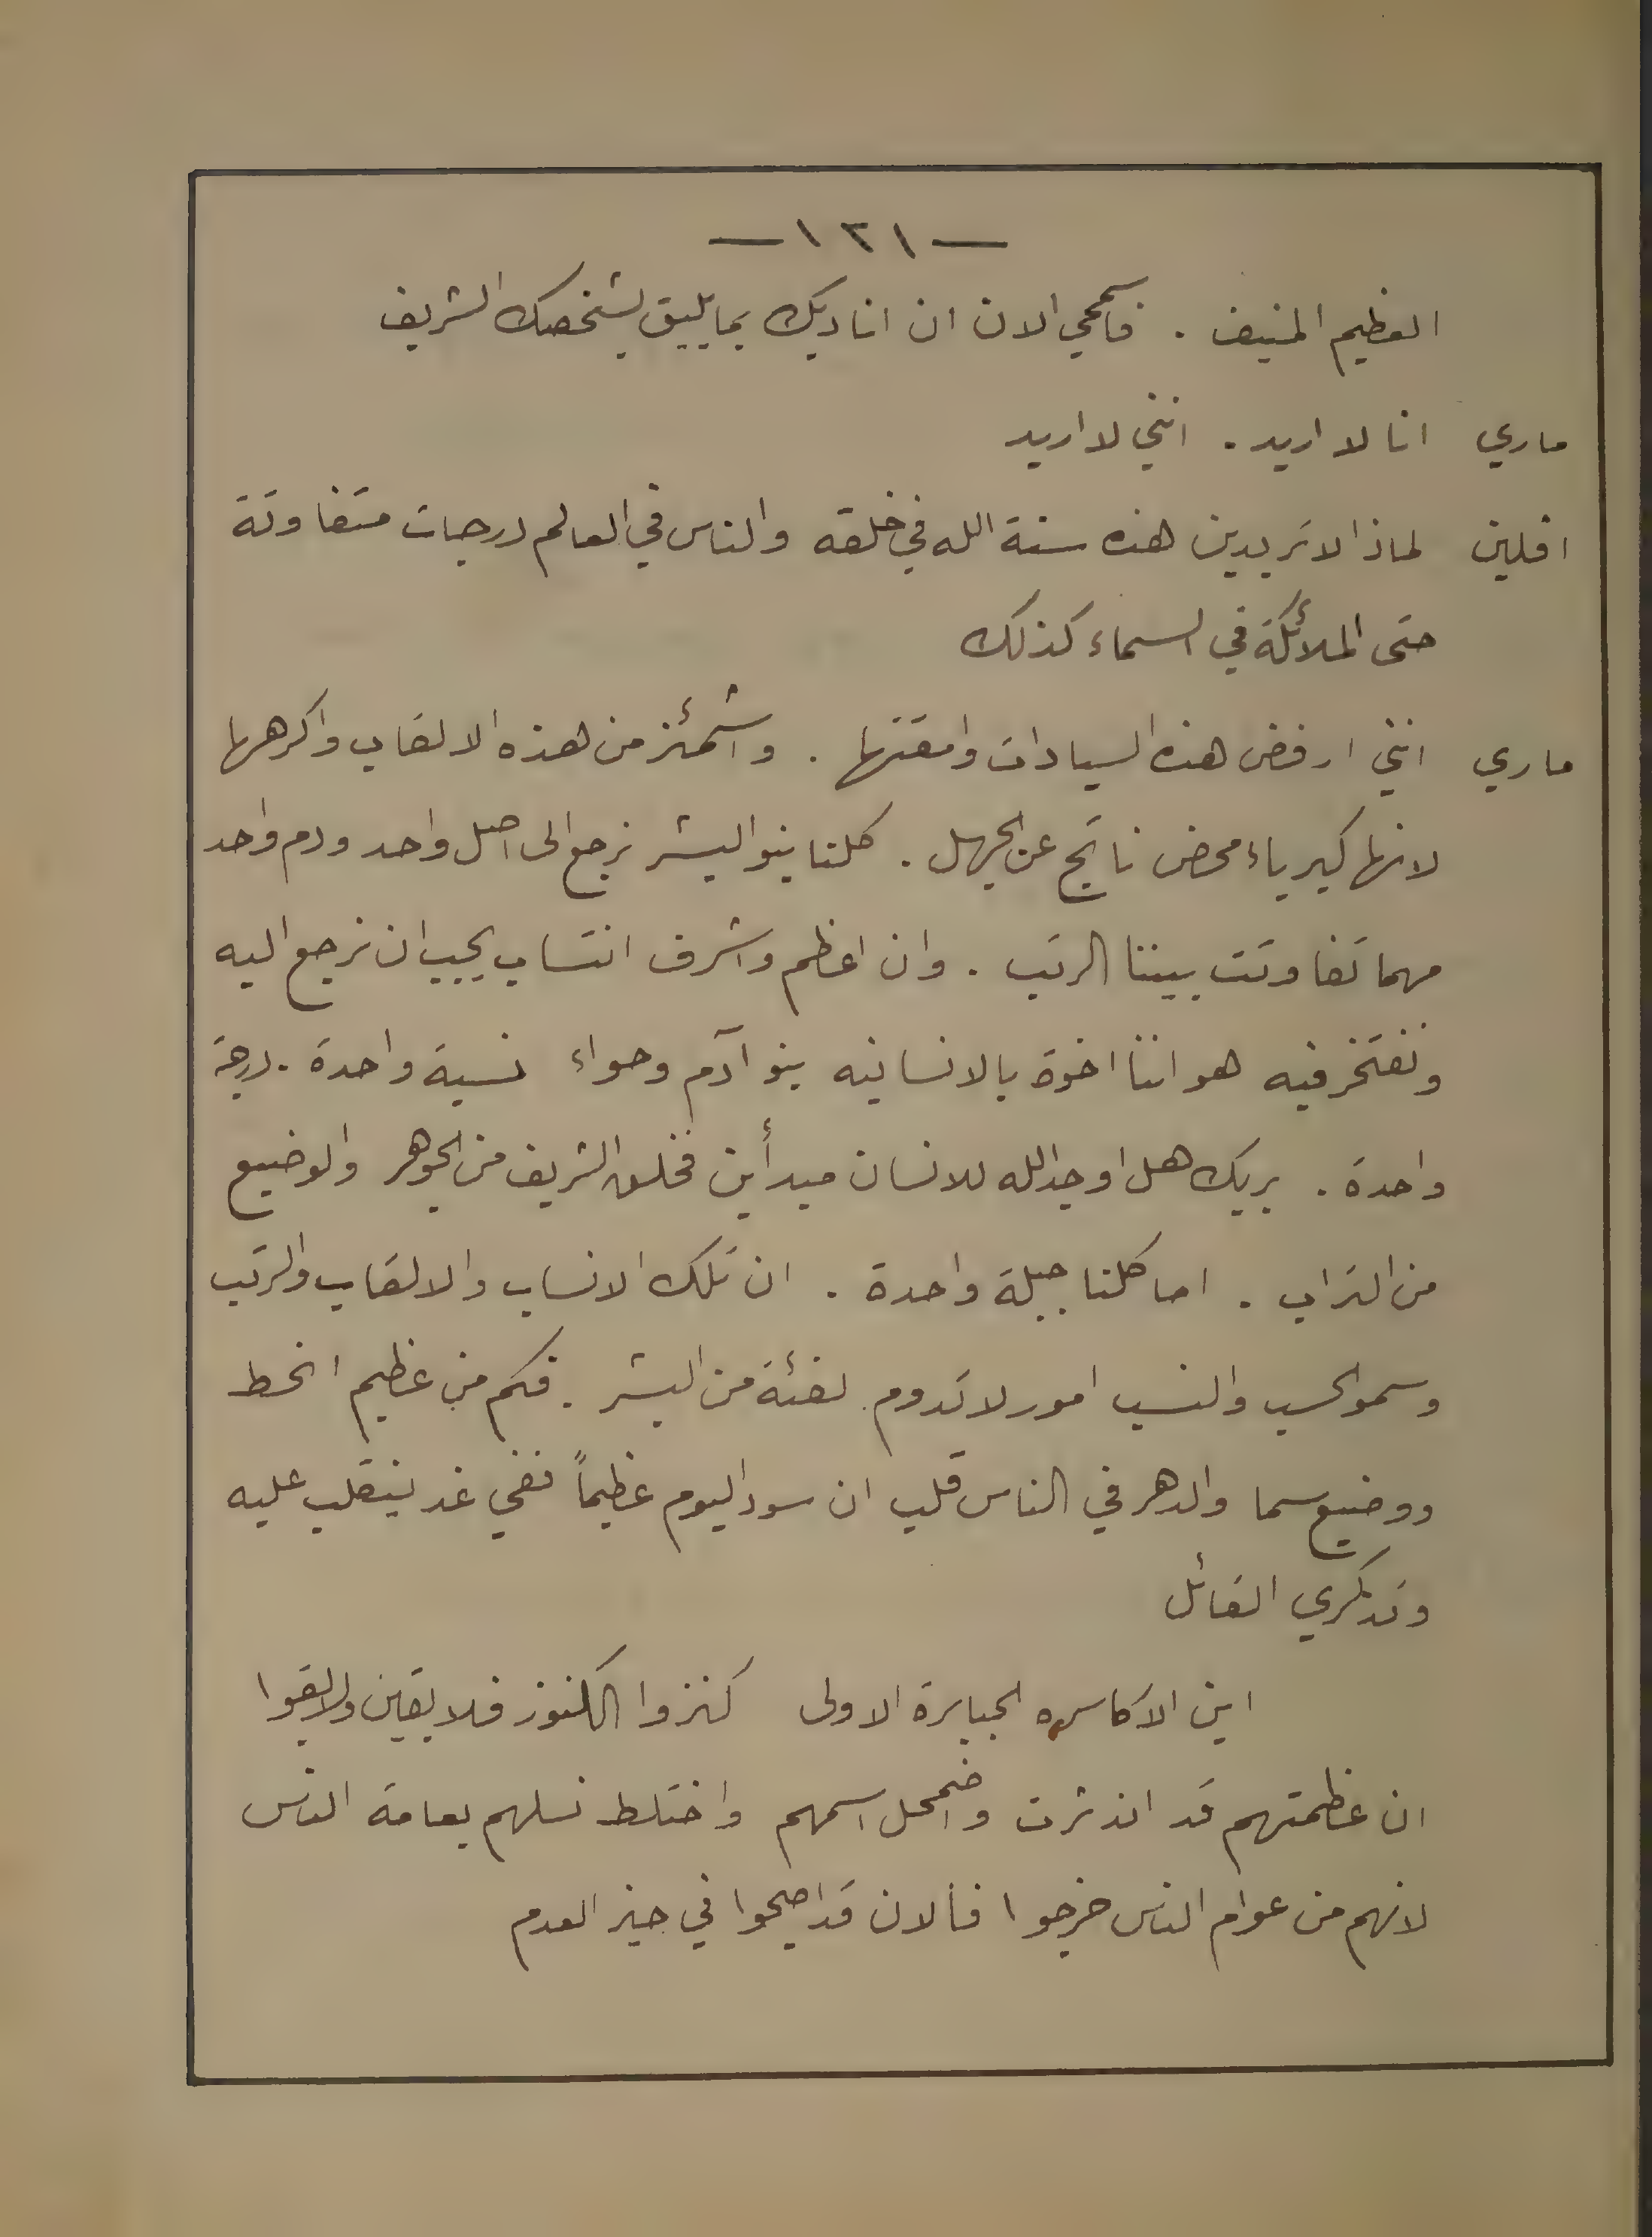 — ١٢١ —
العظيم المنيف . فاسمحي الان ان اناديك بما يليق بشخصك الشريف
ماري انا لا اريد . انني لا اريد
افلين لماذا لا تريدين هذه سنة الله في خلقه والناس في العالم درجات متفاوتة
حتى الملائكة في السماء كذلك
ماري انني ارفض هذه السيادات وامقتها . واشمئز من هذه الالقاب واكرهها
لانها كبرياء محض ناتج عن الجهل . كلنا بنو البشر نرجع الى اصل واحد ودم واحد
مهما تفاوتت بيننا الرتب . وان اعظم واشرف انتساب يجب ان نرجع اليه
ونفتخر فيه هو اننا اخوة بالانسانيه بنو آدم وحواء نسبة واحدة . درجة
واحدة . بربك هل اوجد الله للانسان مبدأين فخلق الشريف من الجوهر والوضيع
من التراب . اما كلنا جبلة واحدة . ان تلك الانساب والالقاب والرتب
وسمو الحسب والنسب امور لا تدوم لفئة من البشر . فكم من عظيم انحط
ووضيع سما والدهر في الناس قلب ان سود اليوم عظيماً ففي غد ينقلب عليه
وتذكري القائل
اين الاكاسره الجبابرة الاولى كنزوا الكنوز فلا بقين ولا بقوا
ان عظمتهم قد اندثرت واضمحل اسمهم واختلط نسلهم بعامة الناس
لانهم من عوام الناس خرجوا فالان قد اصبحوا في حيز العدم